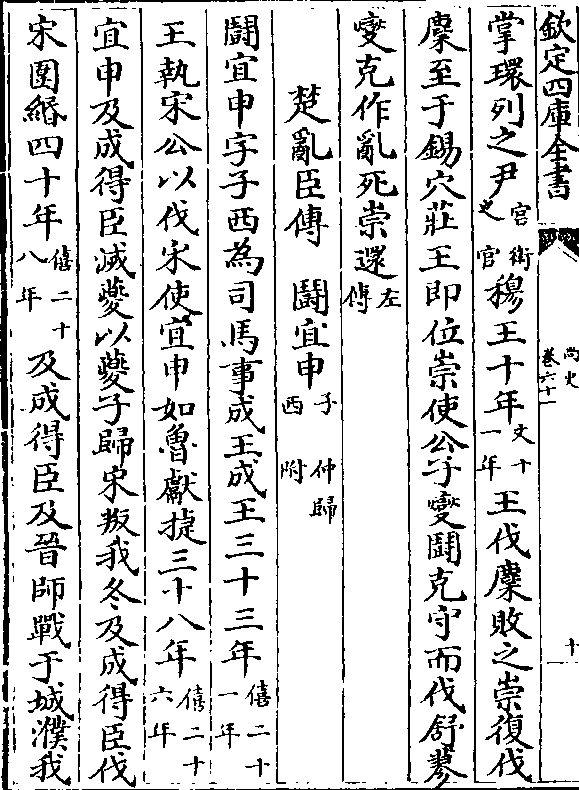 欽定四庫全書
尚史
卷六十一
十
掌環列之尹官衛之官穆王十年文十一年王伐麇敗之崇復伐
麇至于錫穴莊王即位崇使公子爕鬭克守而伐舒蓼
爕克作亂死崇還左傳
楚亂臣傳　鬭宜申子西　仲歸附
鬭宜申字子西為司馬事成王成王三十三年僖二十一年
王執宋公以伐宋使宜申如魯獻捷三十八年僖二十六年
宜申及成得臣滅夔以夔子歸宋叛我冬及成得臣伐
宋圍緡四十年僖二十八年及成得臣及晉師戰于城濮我